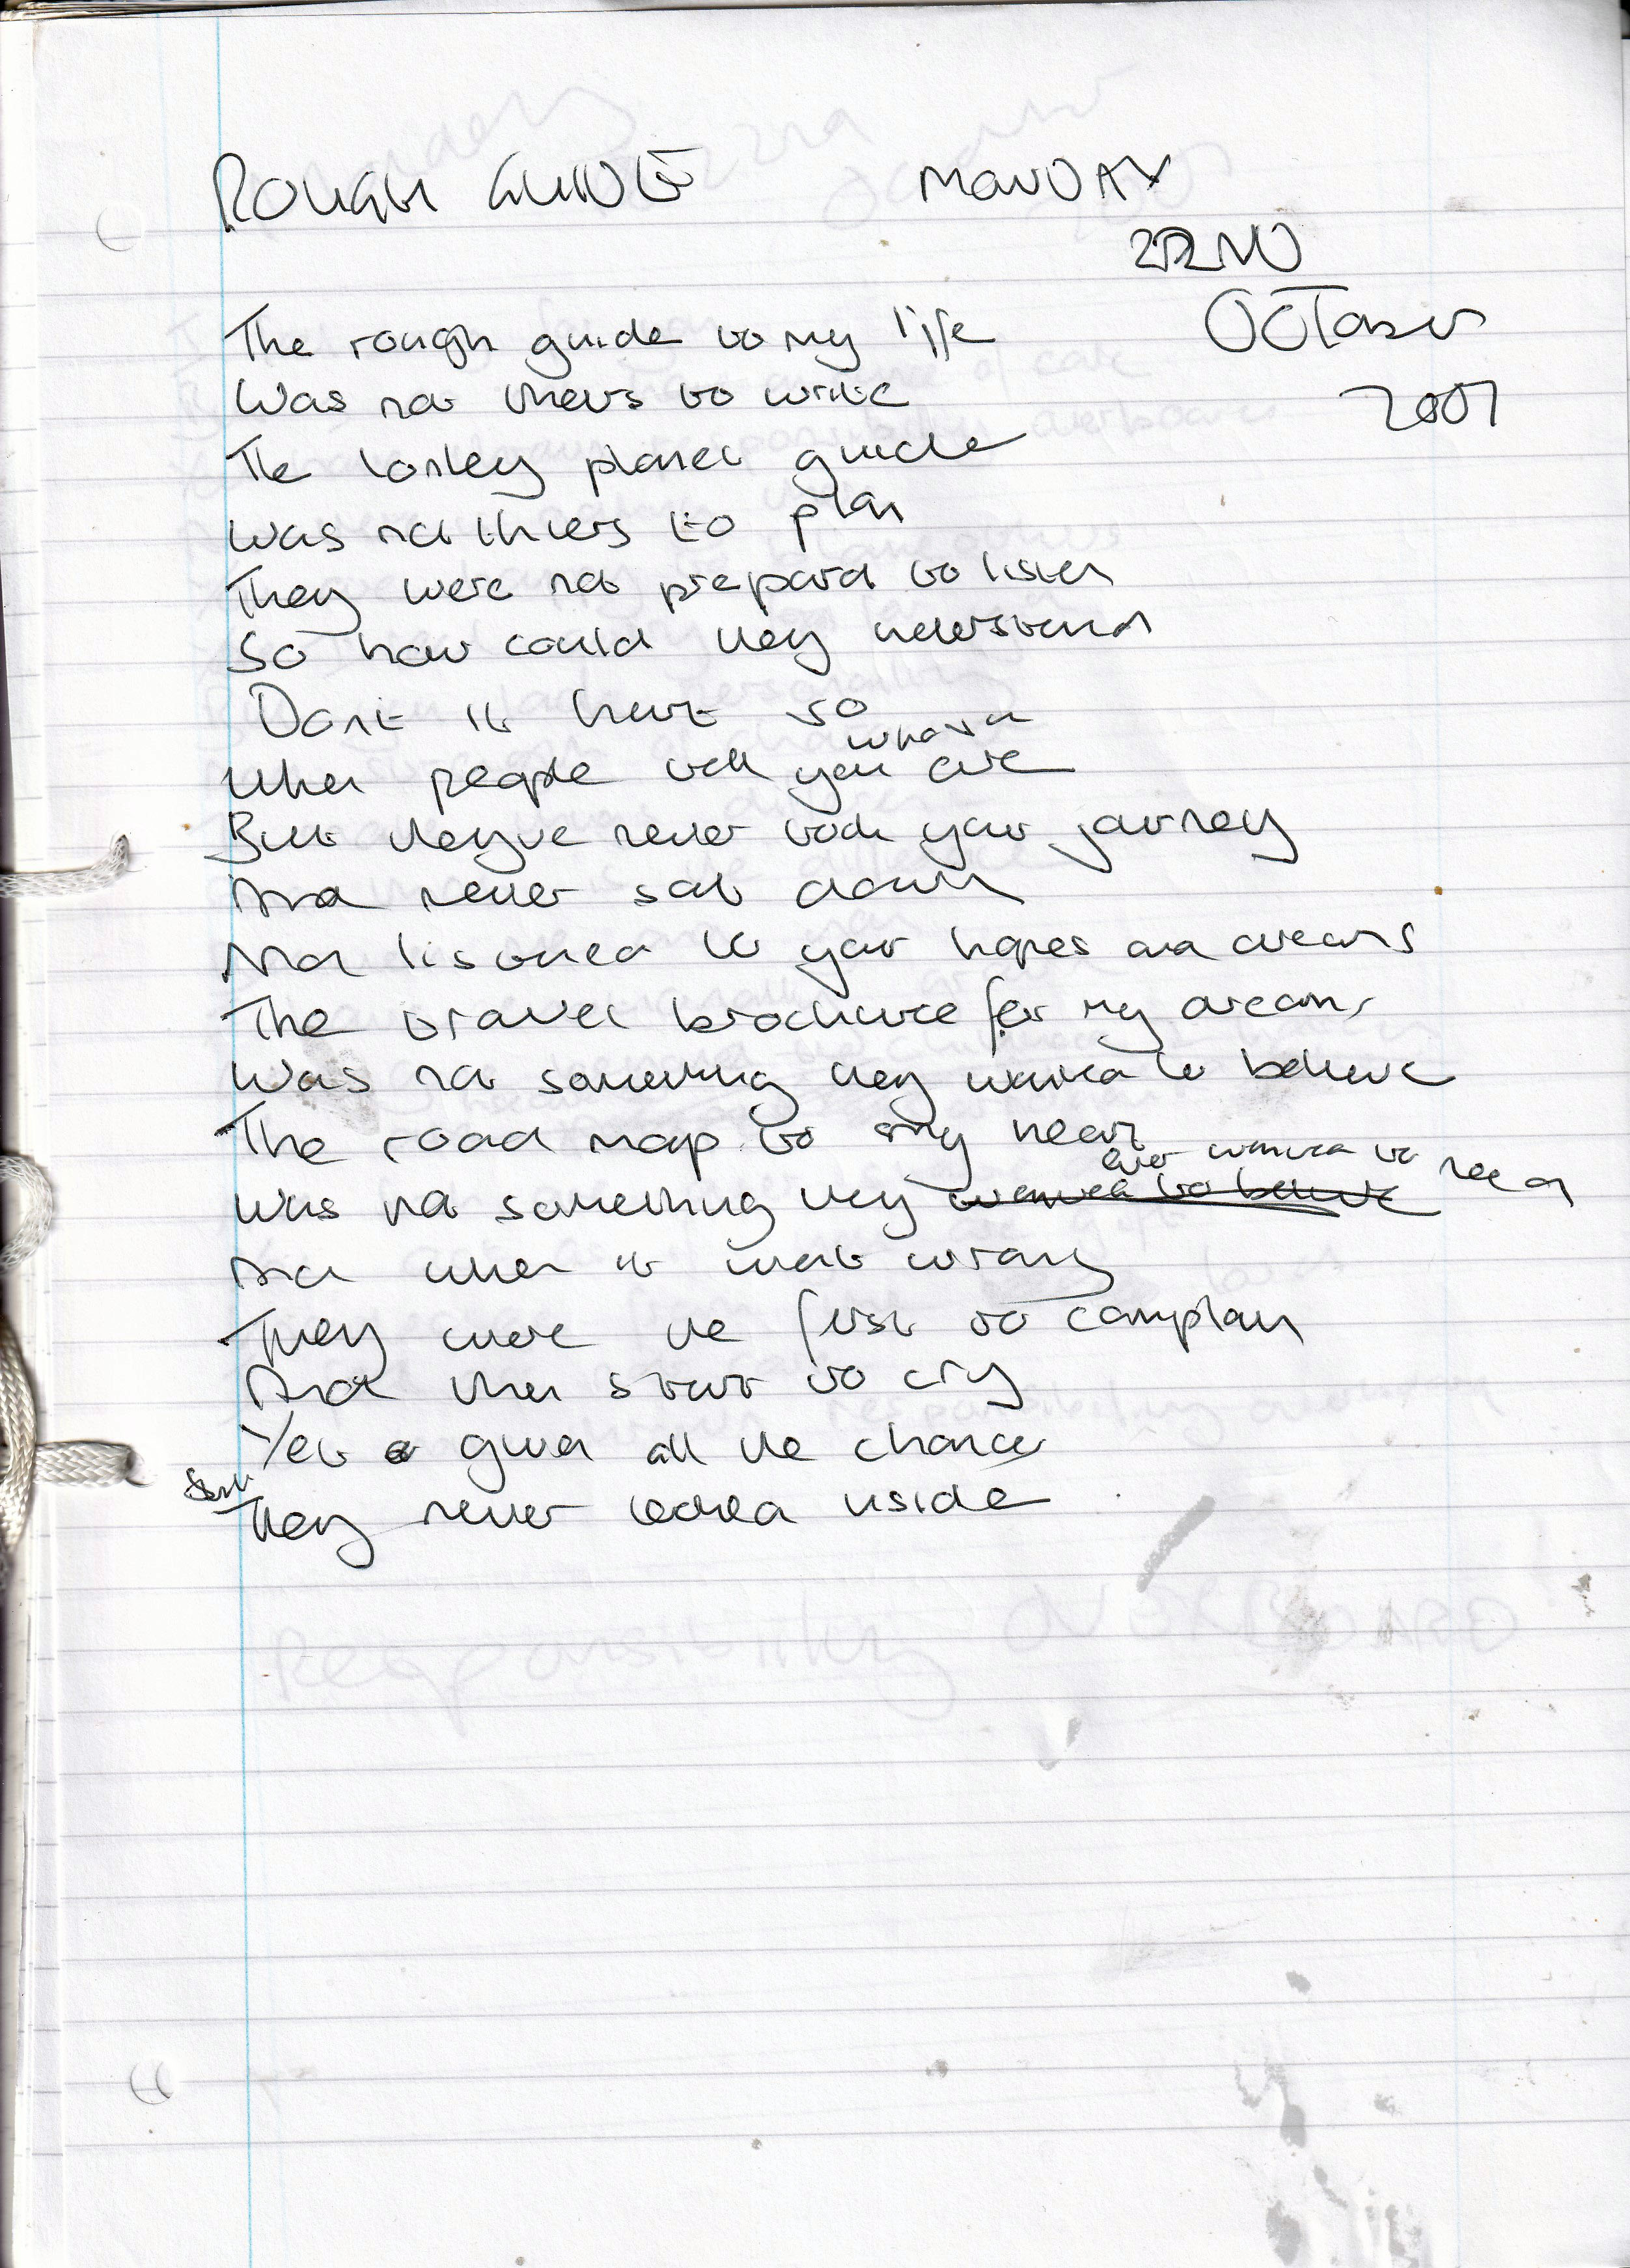 ROUGH GUIDE
MONDAY
22ND
OCTOBER
2007
The rough guide to my life
Was not theirs to write
The lonley planet guide
Was not thiers to plan
They were not prepard to listen
So how could they understand
Dont it hurt so
what a
When people tell you are
But theyve never took your journey
And never sat down
And listened to your hopes and dreams
The travel brochure for my dreams
Was not something they wanted to believe
The road map to my heart
ever wanted to read
Was not something they wanted to believe
And when it went wrong
They were the first to complain
And then start to cry
Yet given all the chances
Still
They never looked inside
Responsibility OVERBOARD